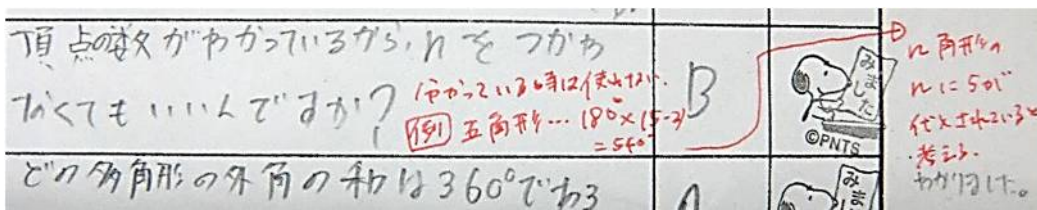 頂点の数がわかっているから、nをつかわ
なくてもいいんですか?
わかっている時は使わない。
例 五角形… 180°×(5-2)
=540°
B
みました
©PNTS
n角形の
nに5が
代入されていると
考える。
わかりました。
どの多角形の外角の和は360°である